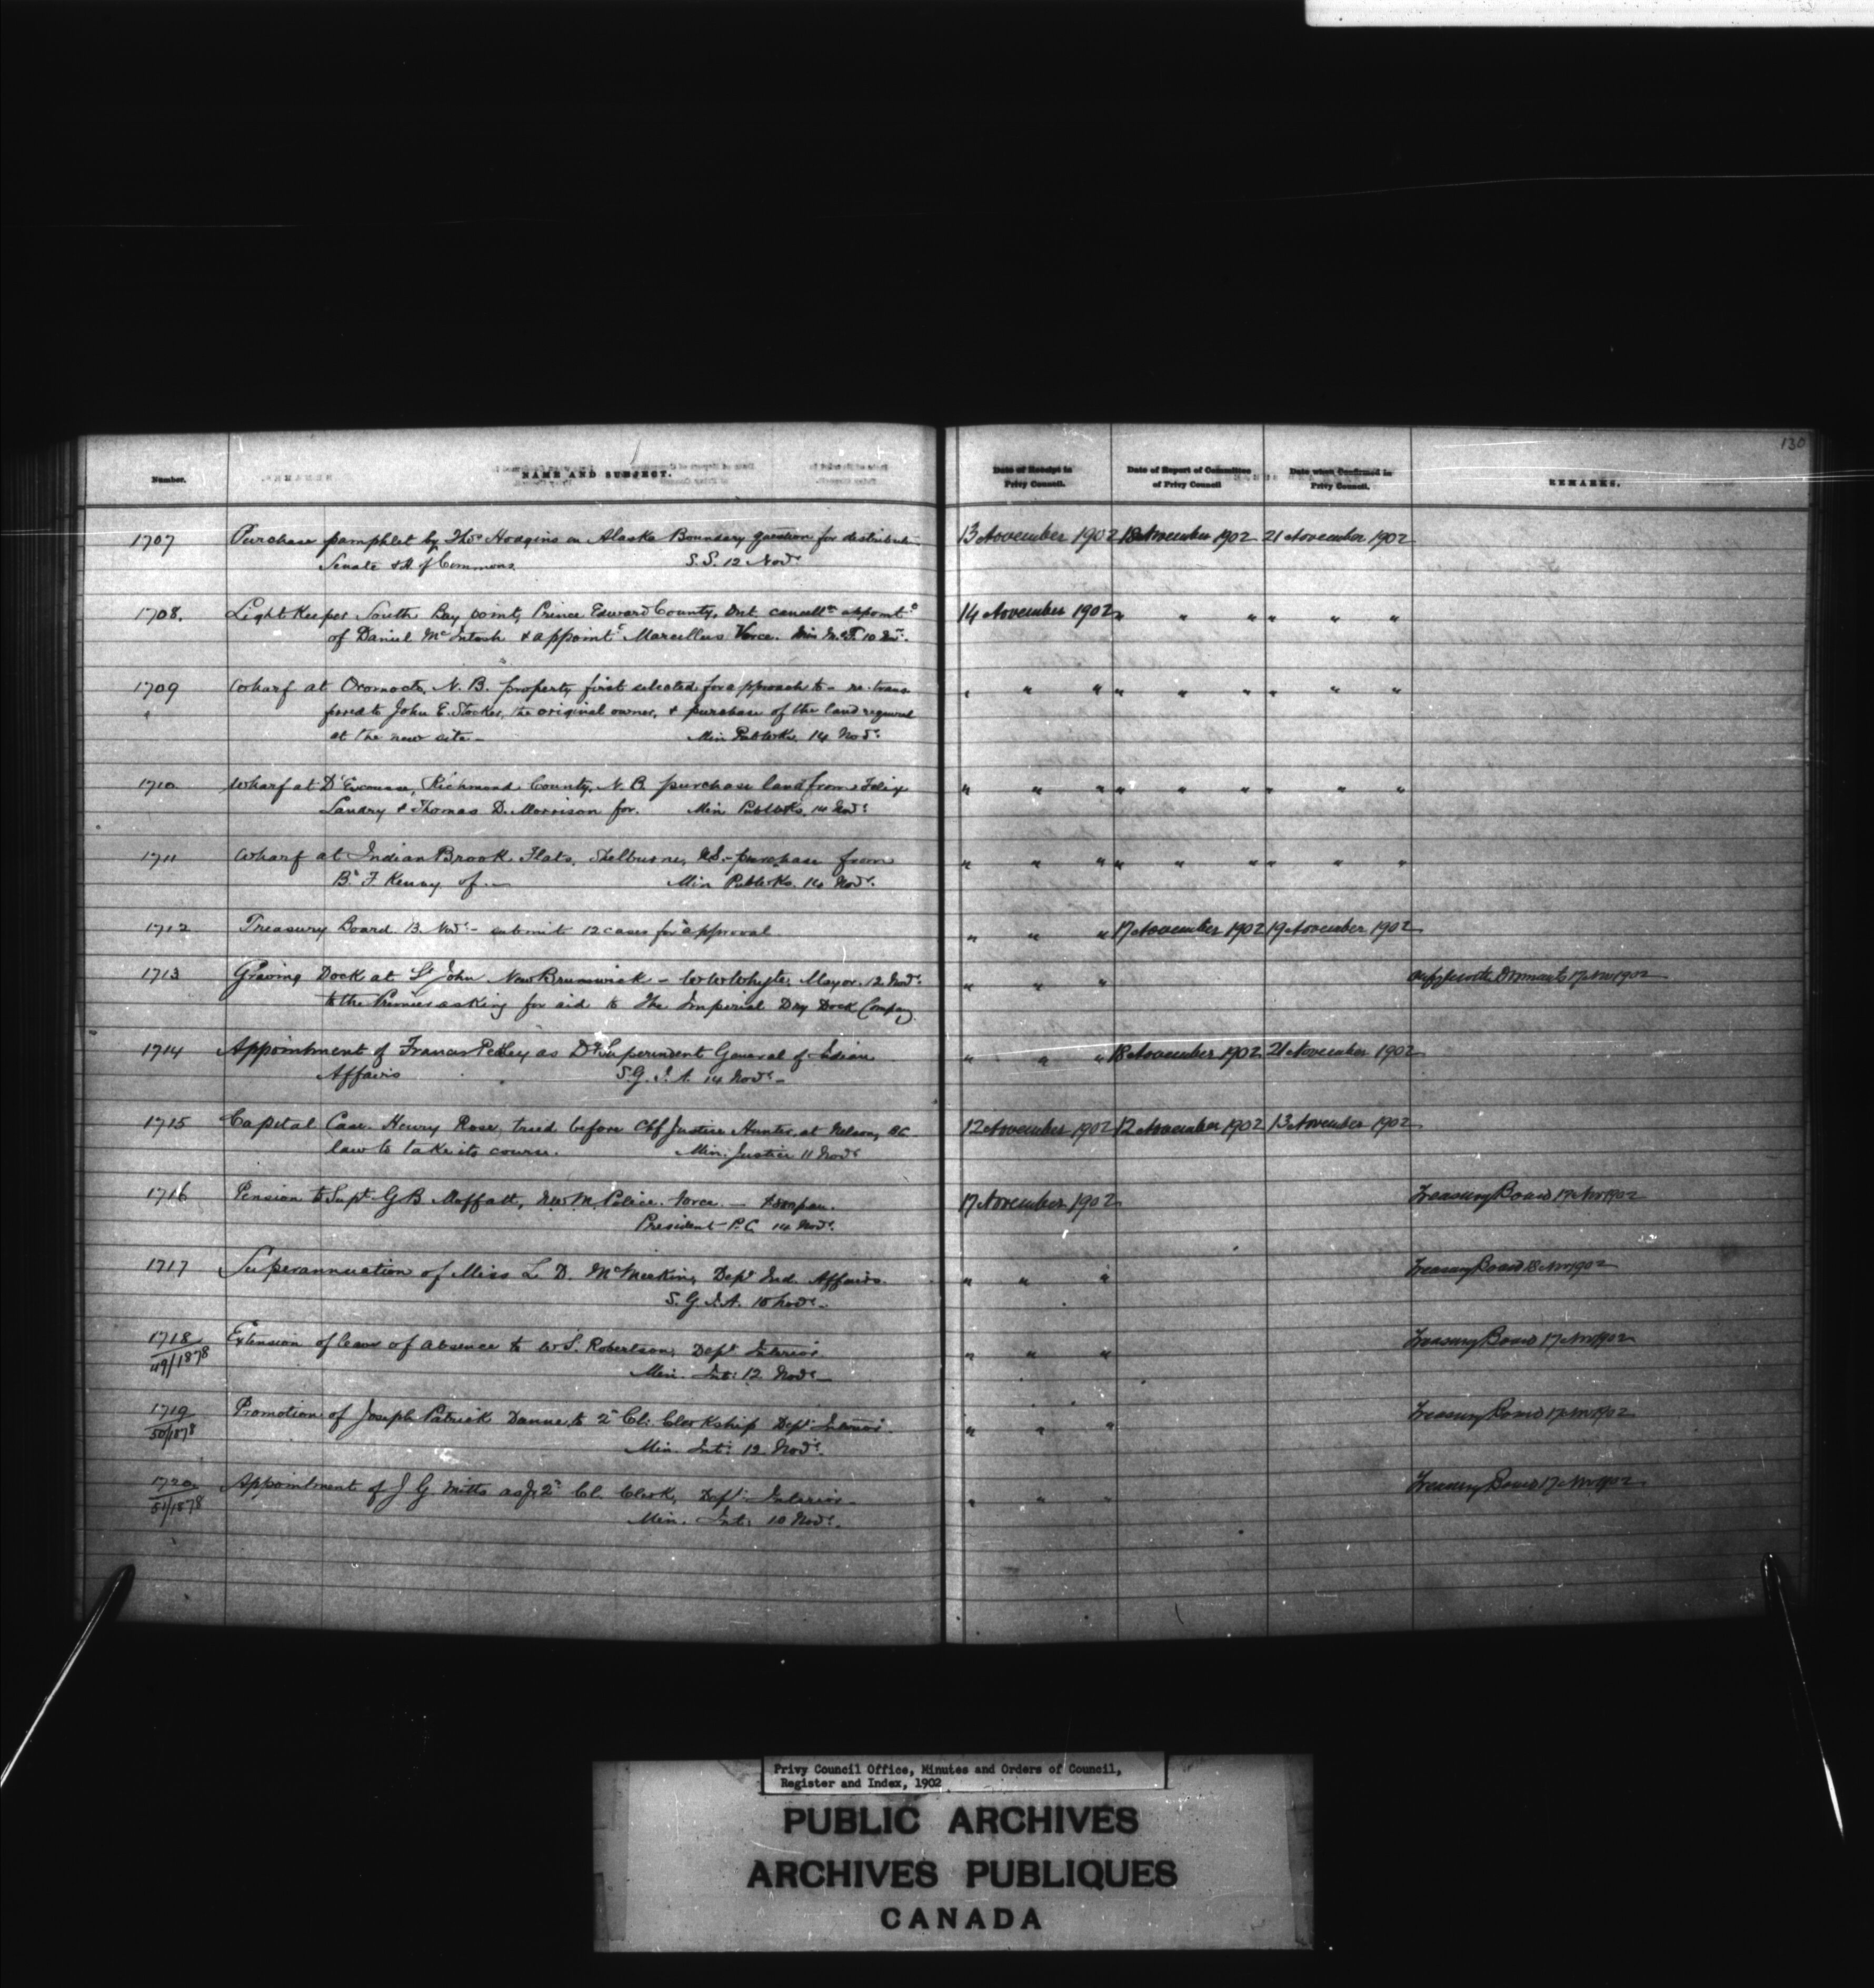 130
Number. NAME AND SUBJECT. Date of Receipt in Privy Council. Date of Report of Committee of Privy Council Date when Confirmed in Privy Council. REMARKS.
1707 Purchase pamphlet by Thos Hodgins on Alaska Boundary question for distribute 13 November 1902 18 November 1902 21 November 1902
Senate & H. of Commons. S.S. 12 Novr
1708. Light Keeper South Bay point, Prince Edward County, Ont cancelln appomt 14 November 1902 " " " " " "
of Daniel McIntosh & appointt Marcellus Vorce. Min M. & F. 10 Nov.
1709 Wharf at Oromocto, N.B. property first selected for approach to - re-trans " " " " " " " " "
ferred to John E. Stocker, the original owner, & purchase of the land required
at the new site - Min Pub Wks. 14 Novr
1710 Wharf at D'Escousse, Richmond County, N.B. purchase land from Felix " " " " " " " " "
Landry & Thomas D. Morrison for. Min Pub Wks. 14 Novr
1711 Wharf at Indian Brook Flats, Shelburne, N.S. - purchase from " " " " " " " " "
B. F. Kenny of - Min Pub Wks. 14 Novr.
1712 Treasury Board 13 Novr - submit 12 cases for approval " " " 17 November 1902 19 November 1902
1713 Graving Dock at St John New Brunswick - W W White, Mayor. 12 Novr " " " 17 Nov 1902
to the Premier asking for aid to The Imperial Dry Dock Company
1714 Appointment of Francis Pedley as Dy Superindent General of Indian " " " 18 November 1902 21 November 1902
Affairs S.G.I.A. 14 Novr -
1715 Capital Case. Henry Rose, tried before Chf Justice Hunter, at Nelson, BC 12 November 1902 12 November 1902 13 November 1902
law to take its course. Min. Justice 11 Novr
1716 Pension to Supt. G B Moffatt, N.W.M. Police. force - 17 November 1902 Treasury Board 17 Nov 1902
President P.C. 14 Novr.
1717 Superannuation of Miss L. D. McMeekin, Dept Ind Affairs. " " " Treasury Board 18 Nov 1902
S.G.I.A. 10 Novr -
1718 Extension of leave of absence to W S. Robertson, Dept Interior " " " Treasury Board 17 Nov 1902
49/1878 Min. Int: 12 Novr -
1719 Promotion of Joseph Patrick Dunne to 2d Cl: Clerkship Dept Interior. " " " Treasury Board 17 Nov 1902
50/1878 Min. Int: 12 Novr.
1720 Appointment of J G Mitts as Jr 2d Cl. Clerk, Dept Interior - " " " Treasury Board 17 Nov 1902
51/1878 Min. Int: 10 Novr.
Privy Council Office, Minutes and Orders of Council,
Register and Index, 1902
PUBLIC ARCHIVES
ARCHIVES PUBLIQUES
CANADA